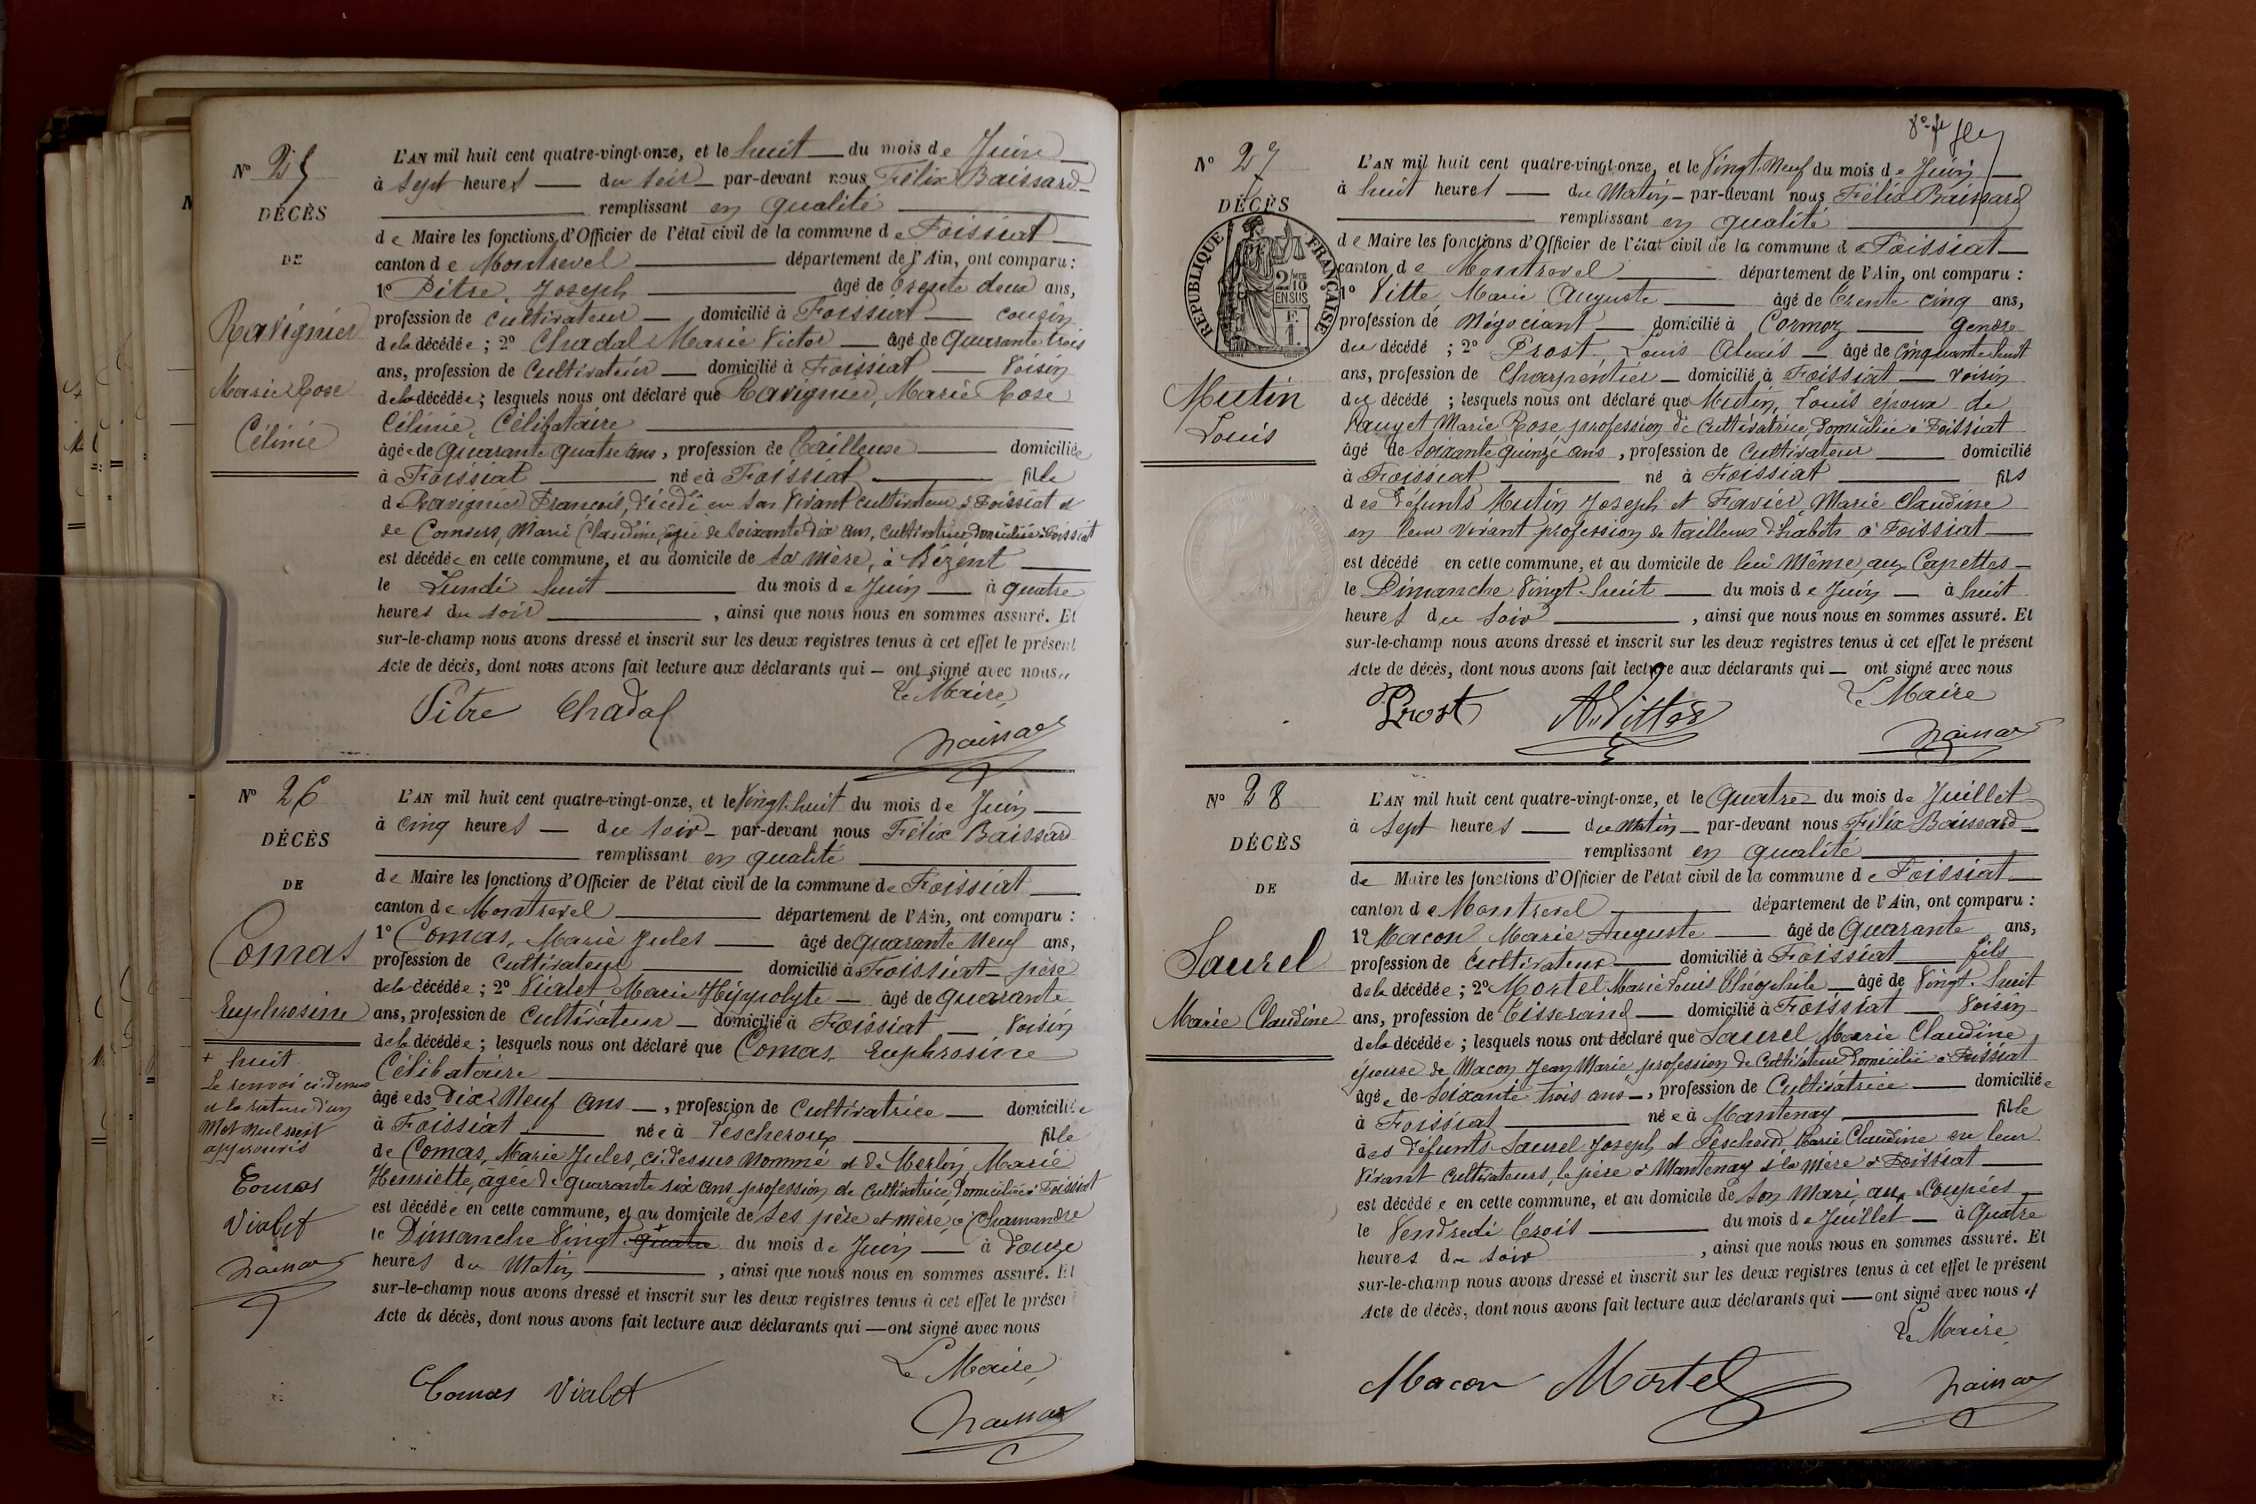 N° 25
DÉCÈS
DE
Ravignier
Marie Rose
Célinie
L'AN mil huit cent quatre-vingt-onze, et le huit du mois de Juin
à Sept heures du soir par-devant nous Félix Baissard
remplissant en qualité
de Maire les fonctions d'Officier de l'état civil de la commune de Foissiat
canton de Montrevel département de l'Ain, ont comparu :
1° Pitre, Joseph âgé de trente deux ans,
profession de cultivateur domicilié à Foissiat cousin
de la décédée ; 2° Chadal Marie Victor âgé de quarante trois
ans, profession de cultivateur domicilié à Foissiat Voisin
de la décédée ; lesquels nous ont déclaré que Ravignier, Marie Rose
Célinie, Célibataire
âgée de quarante quatre ans, profession de tailleuse domiciliée
à Foissiat née à Foissiat fille
de Ravignier François, décédé en son vivant cultivateur à Foissiat et
de Marie Claudine, âgée de soixante dix ans, cultivatrice domiciliée à Foissiat
est décédée en cette commune, et au domicile de sa mère, à Bézént
le Lundi huit du mois de Juin à quatre
heures du soir , ainsi que nous nous en sommes assuré. Et
sur-le-champ nous avons dressé et inscrit sur les deux registres tenus à cet effet le présent
Acte de décès, dont nous avons fait lecture aux déclarants qui — ont signé avec nous
Le Maire,
Pitre Chadal
N° 26
DÉCÈS
DE
Comas
Euphrosine
+ huit
Le renvoi ci-dessus
et la rature d'un
mot nul sont
approuvés
Comas
Vialet
L'AN mil huit cent quatre-vingt-onze, et le Vingt-huit du mois de Juin
à cinq heures du soir par-devant nous Félix Baissard
remplissant en qualité
de Maire les fonctions d'Officier de l'état civil de la commune de Foissiat
canton de Montrevel département de l'Ain, ont comparu :
1° Comas, Marie Jules âgé de quarante neuf ans,
profession de cultivateur domicilié à Foissiat père
de la décédée ; 2° Vialet Marie Hyppolyte âgé de quarante
ans, profession de cultivateur domicilié à Foissiat Voisin
de la décédée ; lesquels nous ont déclaré que Comas, Euphrosine
Célibataire
âgée de Dix Neuf ans , profession de cultivatrice domiciliée
à Foissiat née à Lescheroux fille
de Comas, Marie Jules, ci-dessus nommé et de Merloz, Marie
Henriette, âgée de quarante six ans, profession de cultivatrice, domiciliée à Foissiat
est décédée en cette commune, et au domicile de ses père et mère, à Chamandre
le Dimanche Vingt quatre + du mois de Juin à douze
heures du Matin , ainsi que nous nous en sommes assuré. Et
sur-le-champ nous avons dressé et inscrit sur les deux registres tenus à cet effet le présent
Acte de décès, dont nous avons fait lecture aux déclarants qui — ont signé avec nous
Le Maire,
Comas Vialet
N° 27
DÉCÈS
RÉPUBLIQUE FRANÇAISE
2/10 EN SUS
Mutin
Louis
L'AN mil huit cent quatre-vingt-onze, et le Vingt-Neuf du mois de Juin
à huit heures du Matin par-devant nous Félix Baissard
remplissant en qualité
de Maire les fonctions d'Officier de l'état civil de la commune de Foissiat
canton de Montrevel département de l'Ain, ont comparu :
1° Vitte, Marie Auguste âgé de trente cinq ans,
profession de Négociant domicilié à Cormoz gendre
du décédé ; 2° Prost, Louis Alexis âgé de cinquante huit
ans, profession de Charpentier domicilié à Foissiat voisin
du décédé ; lesquels nous ont déclaré que Mutin, Louis époux de
Marie Rose, profession de cultivatrice, domiciliée à Foissiat
âgé de soixante quinze ans , profession de cultivateur domicilié
à Foissiat né à Foissiat fils
des défunts Mutin Joseph et Favier, Marie Claudine
en leur vivant profession de tailleurs d'habits à Foissiat
est décédé en cette commune, et au domicile de lui même, aux Capettes
le Dimanche Vingt-huit du mois de Juin à huit
heures du soir , ainsi que nous nous en sommes assuré. Et
sur-le-champ nous avons dressé et inscrit sur les deux registres tenus à cet effet le présent
Acte de décès, dont nous avons fait lecture aux déclarants qui — ont signé avec nous
Le Maire
Prost A. Vitte
N° 28
DÉCÈS
DE
Saurel
Marie Claudine
L'AN mil huit cent quatre-vingt-onze, et le quatre du mois de Juillet
à sept heures du Matin par-devant nous Félix Baissard
remplissant en qualité
de Maire les fonctions d'Officier de l'état civil de la commune de Foissiat
canton de Montrevel département de l'Ain, ont comparu :
1° Macon Marie Auguste âgé de quarante ans,
profession de cultivateur domicilié à Foissiat fils
de la décédée ; 2° Mortel Marie Louis Théophile âgé de Vingt-huit
ans, profession de tisserand domicilié à Foissiat Voisin
de la décédée ; lesquels nous ont déclaré que Saurel Marie Claudine
épouse de Macon Jean Marie, profession de cultivateur domicilié à Foissiat
âgée de soixante trois ans , profession de cultivatrice domiciliée
à Foissiat née à Mantenay fille
des défunts Saurel Joseph et Peschoud Marie Claudine en leur
vivant cultivateurs, le père à Mantenay et la mère à Foissiat
est décédée en cette commune, et au domicile de son mari, aux Coupées
le Vendredi trois du mois de Juillet à quatre
heures du soir , ainsi que nous nous en sommes assuré. Et
sur-le-champ nous avons dressé et inscrit sur les deux registres tenus à cet effet le présent
Acte de décès, dont nous avons fait lecture aux déclarants qui — ont signé avec nous
Le Maire,
Macon Mortel